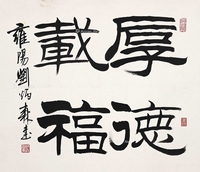 厚德
載福
雍陽劉炳森書